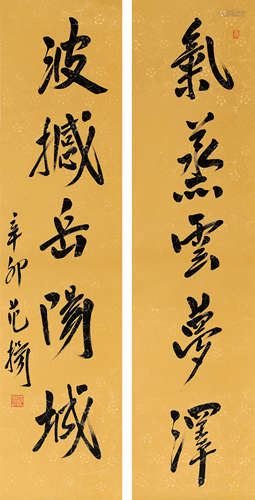 氣蒸雲夢澤
波撼岳陽城
辛卯 范揚